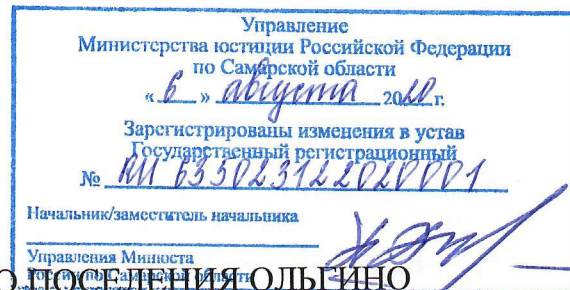 Управление
Министерства юстиции Российской Федерации
по Самарской области
« 6 » августа 2020 г.
Зарегистрированы изменения в устав
Государственный регистрационный
№ RU 635023122020001
Начальник/заместитель начальника
Управления Минюста
России по Самарской области
ПОСЕЛЕНИЯ ОЛЬГИНО